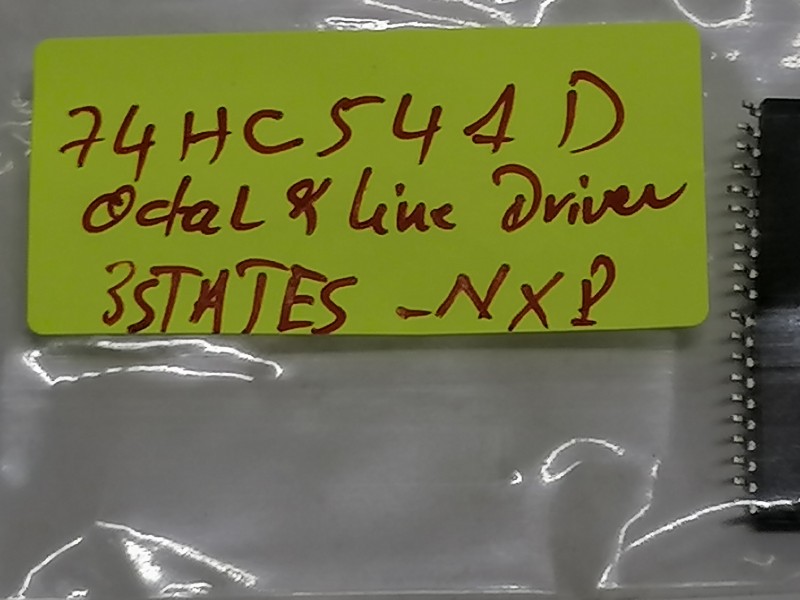 74HC541D
Octal & line Driver
3STATES -NXP